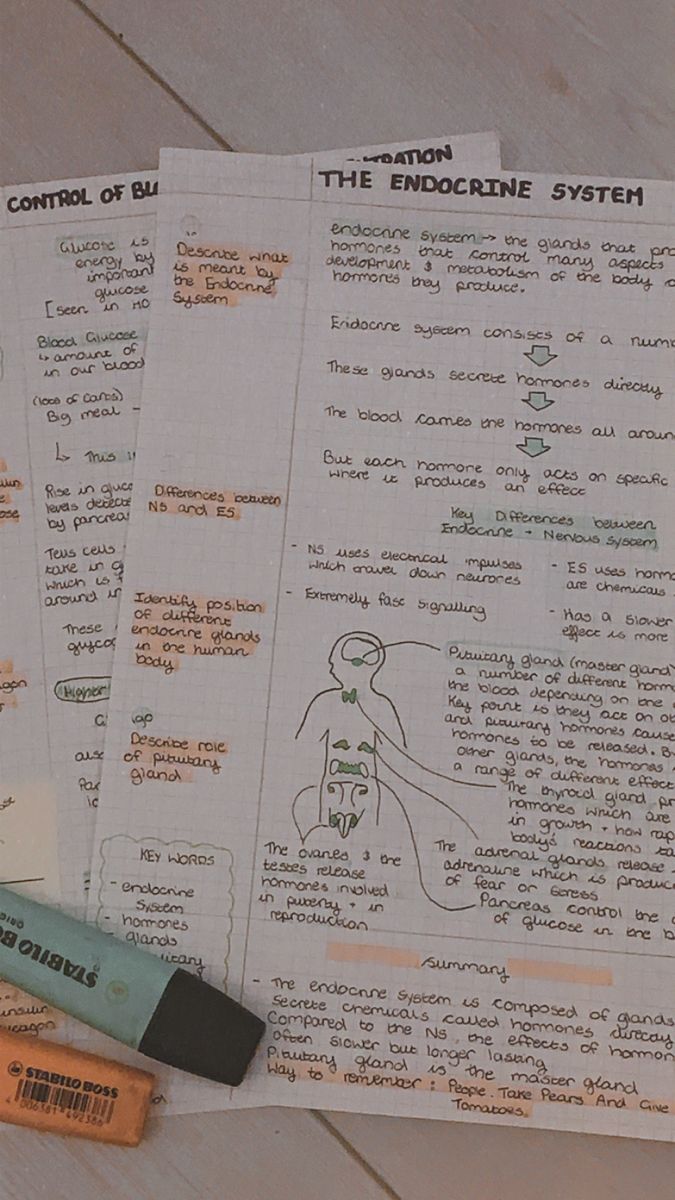 THE ENDOCRINE SYSTEM
Describe what
is meant by
the Endocrine
System
endocrine system → the glands that pro
hormones that control many aspects
development & metabolism of the body
hormones they produce.
Endocrine system consists of a num
These glands secrete hormones directly
The blood carries the hormones all aroun
But each hormone only acts on specific
where it produces an effect
Differences between
NS and ES
Key Differences between
Endocrine + Nervous System
- NS uses electrical impulses
which travel down neurones
- Extremely fast signalling
- ES uses hormo
are chemicals
- Has a slower
effect is more
Identify position
of different
endocrine glands
in the human
body
Describe role
of pituitary
gland
Pituitary gland (master gland)
a number of different horm
the blood depending on the
Key point is they act on ot
and pituitary hormones cause
hormones to be released. B
other glands, the hormones
a range of different effect
The thyroid gland pr
hormones which are
in growth + how rap
body's reactions ta
The adrenal glands release
adrenaline which is produc
of fear or stress
Pancreas control the
of glucose in the b
The ovaries & the
testes release
hormones involved
in puberty + in
reproduction
KEY WORDS
- endocrine
system
- hormones
- glands
uitary
Summary
- The endocrine system is composed of glands
secrete chemicals called hormones direc
Compared to the NS, the effects of hormon
often slower but longer lasting
Pituitary gland is the master gland
Way to remember: People Take Pears And Give
Tomatoes
TRATION
CONTROL OF BL
Glucose is
energy by
important
glucose
[seen in
Blood Glucose
↳ amount of
in our blood
(lots of carbs)
Big meal -
↳ This i
Rise in gluco
levels detecte
by pancrea
Tells cells
take in g
which is
around in
These
glycog
Higher
STABILO BO
STABILO BOSS
4 006381 492386